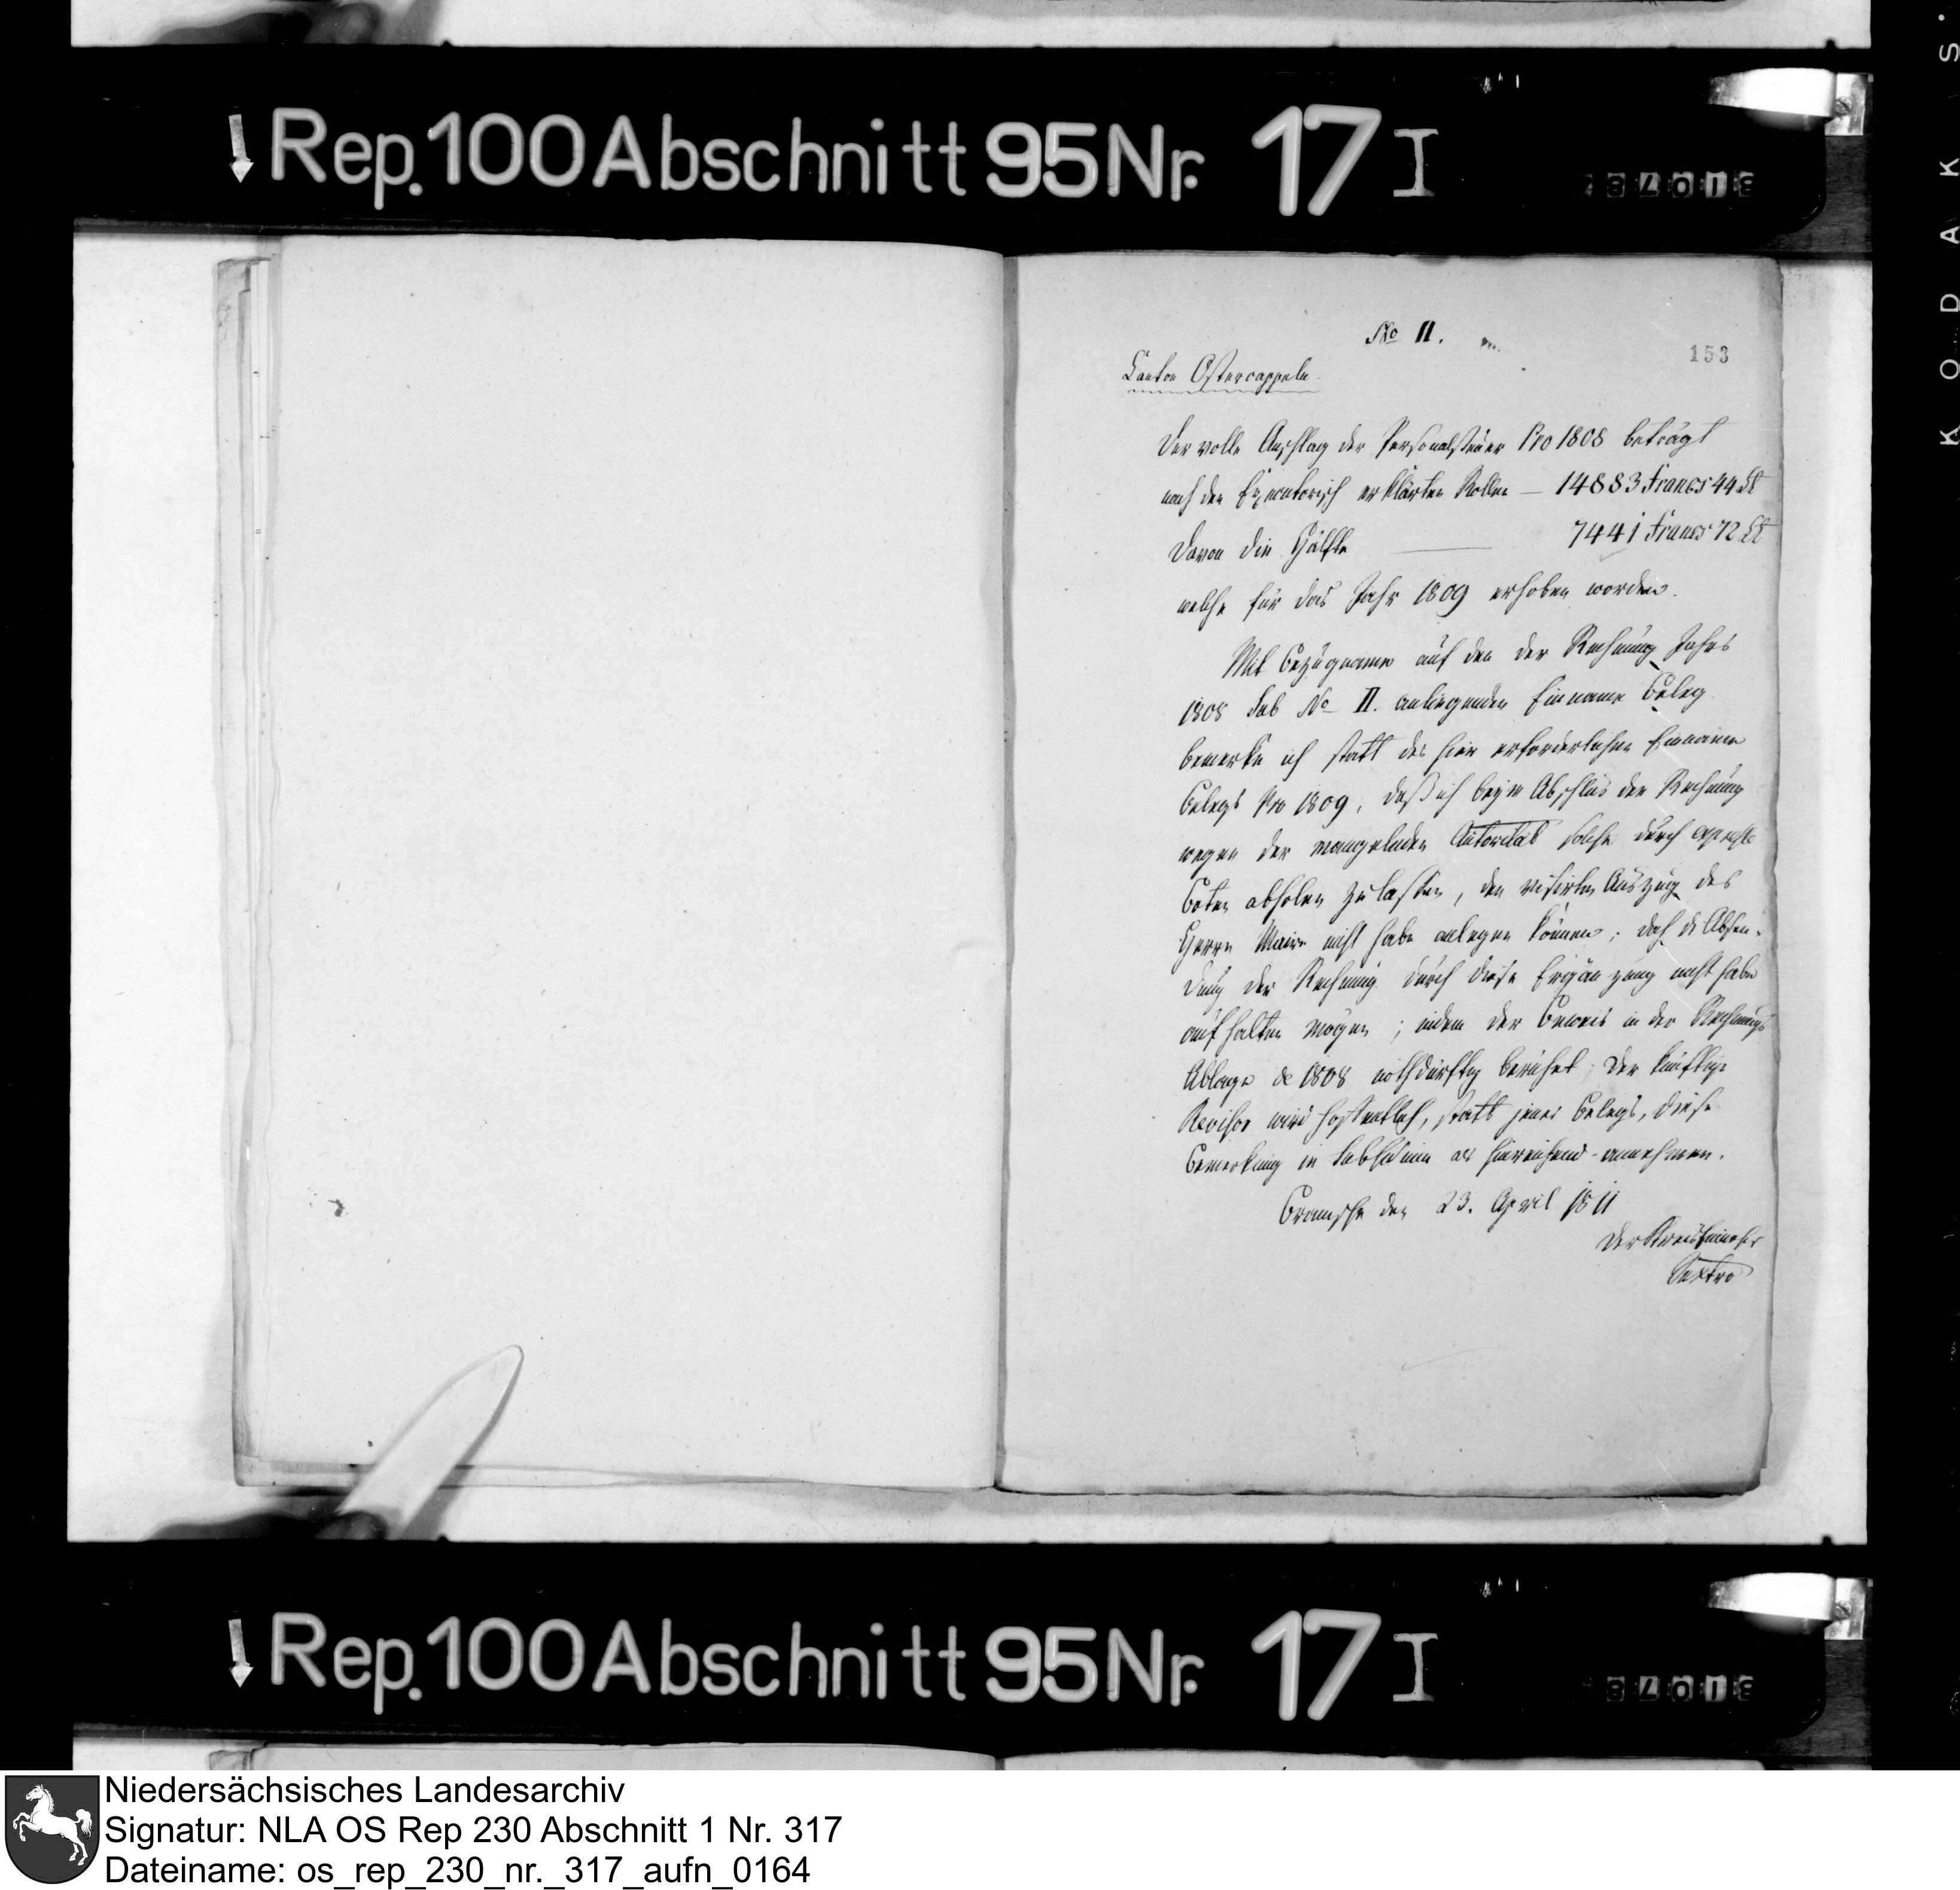 Rep. 100 Abschnitt 95 Nr. 17 I
No II.
153
Canton Ostercappeln
Der volle Anschlag der Personalsteuer Pro 1808 beträgt
nach den Executorisch erklärten Rollen — 14883 Francs 44 Ct
Davon die Hälfte — 7441 Francs 72 Ct
welche für das Jahr 1809 erhoben worden.
Mit Bezugname auf den der Rechnung Jahrs
1808 sub No II. anliegenden Einname Beleg
bemerke ich statt des hier erforderlichen Einname
Belegs pro 1809, daß ich beym Abschlus der Rechnung
wegen der mangelnden Autorität solche durch
Boten abholen zu lassen, den visirten Auszug des
Herrn Maire nicht habe anlegen können; doch die Absen-
dung der Rechnung durch diese Ergänzung nicht habe
aufhalten mögen; indem der Beweis in der Rechnungs
Ablage de 1808 nothdürftig beruhet. Der künftige
Revisor wird hoffentlich, statt jenes Belegs, diese
Bemerkung in subsidium als hinreichend annehmen.
Bramsche den 23. April 1811
Der Kreiseinnehmer
Sextro
Rep. 100 Abschnitt 95 Nr. 17 I
KODAK S
Niedersächsisches Landesarchiv
Signatur: NLA OS Rep 230 Abschnitt 1 Nr. 317
Dateiname: os_rep_230_nr._317_aufn_0164